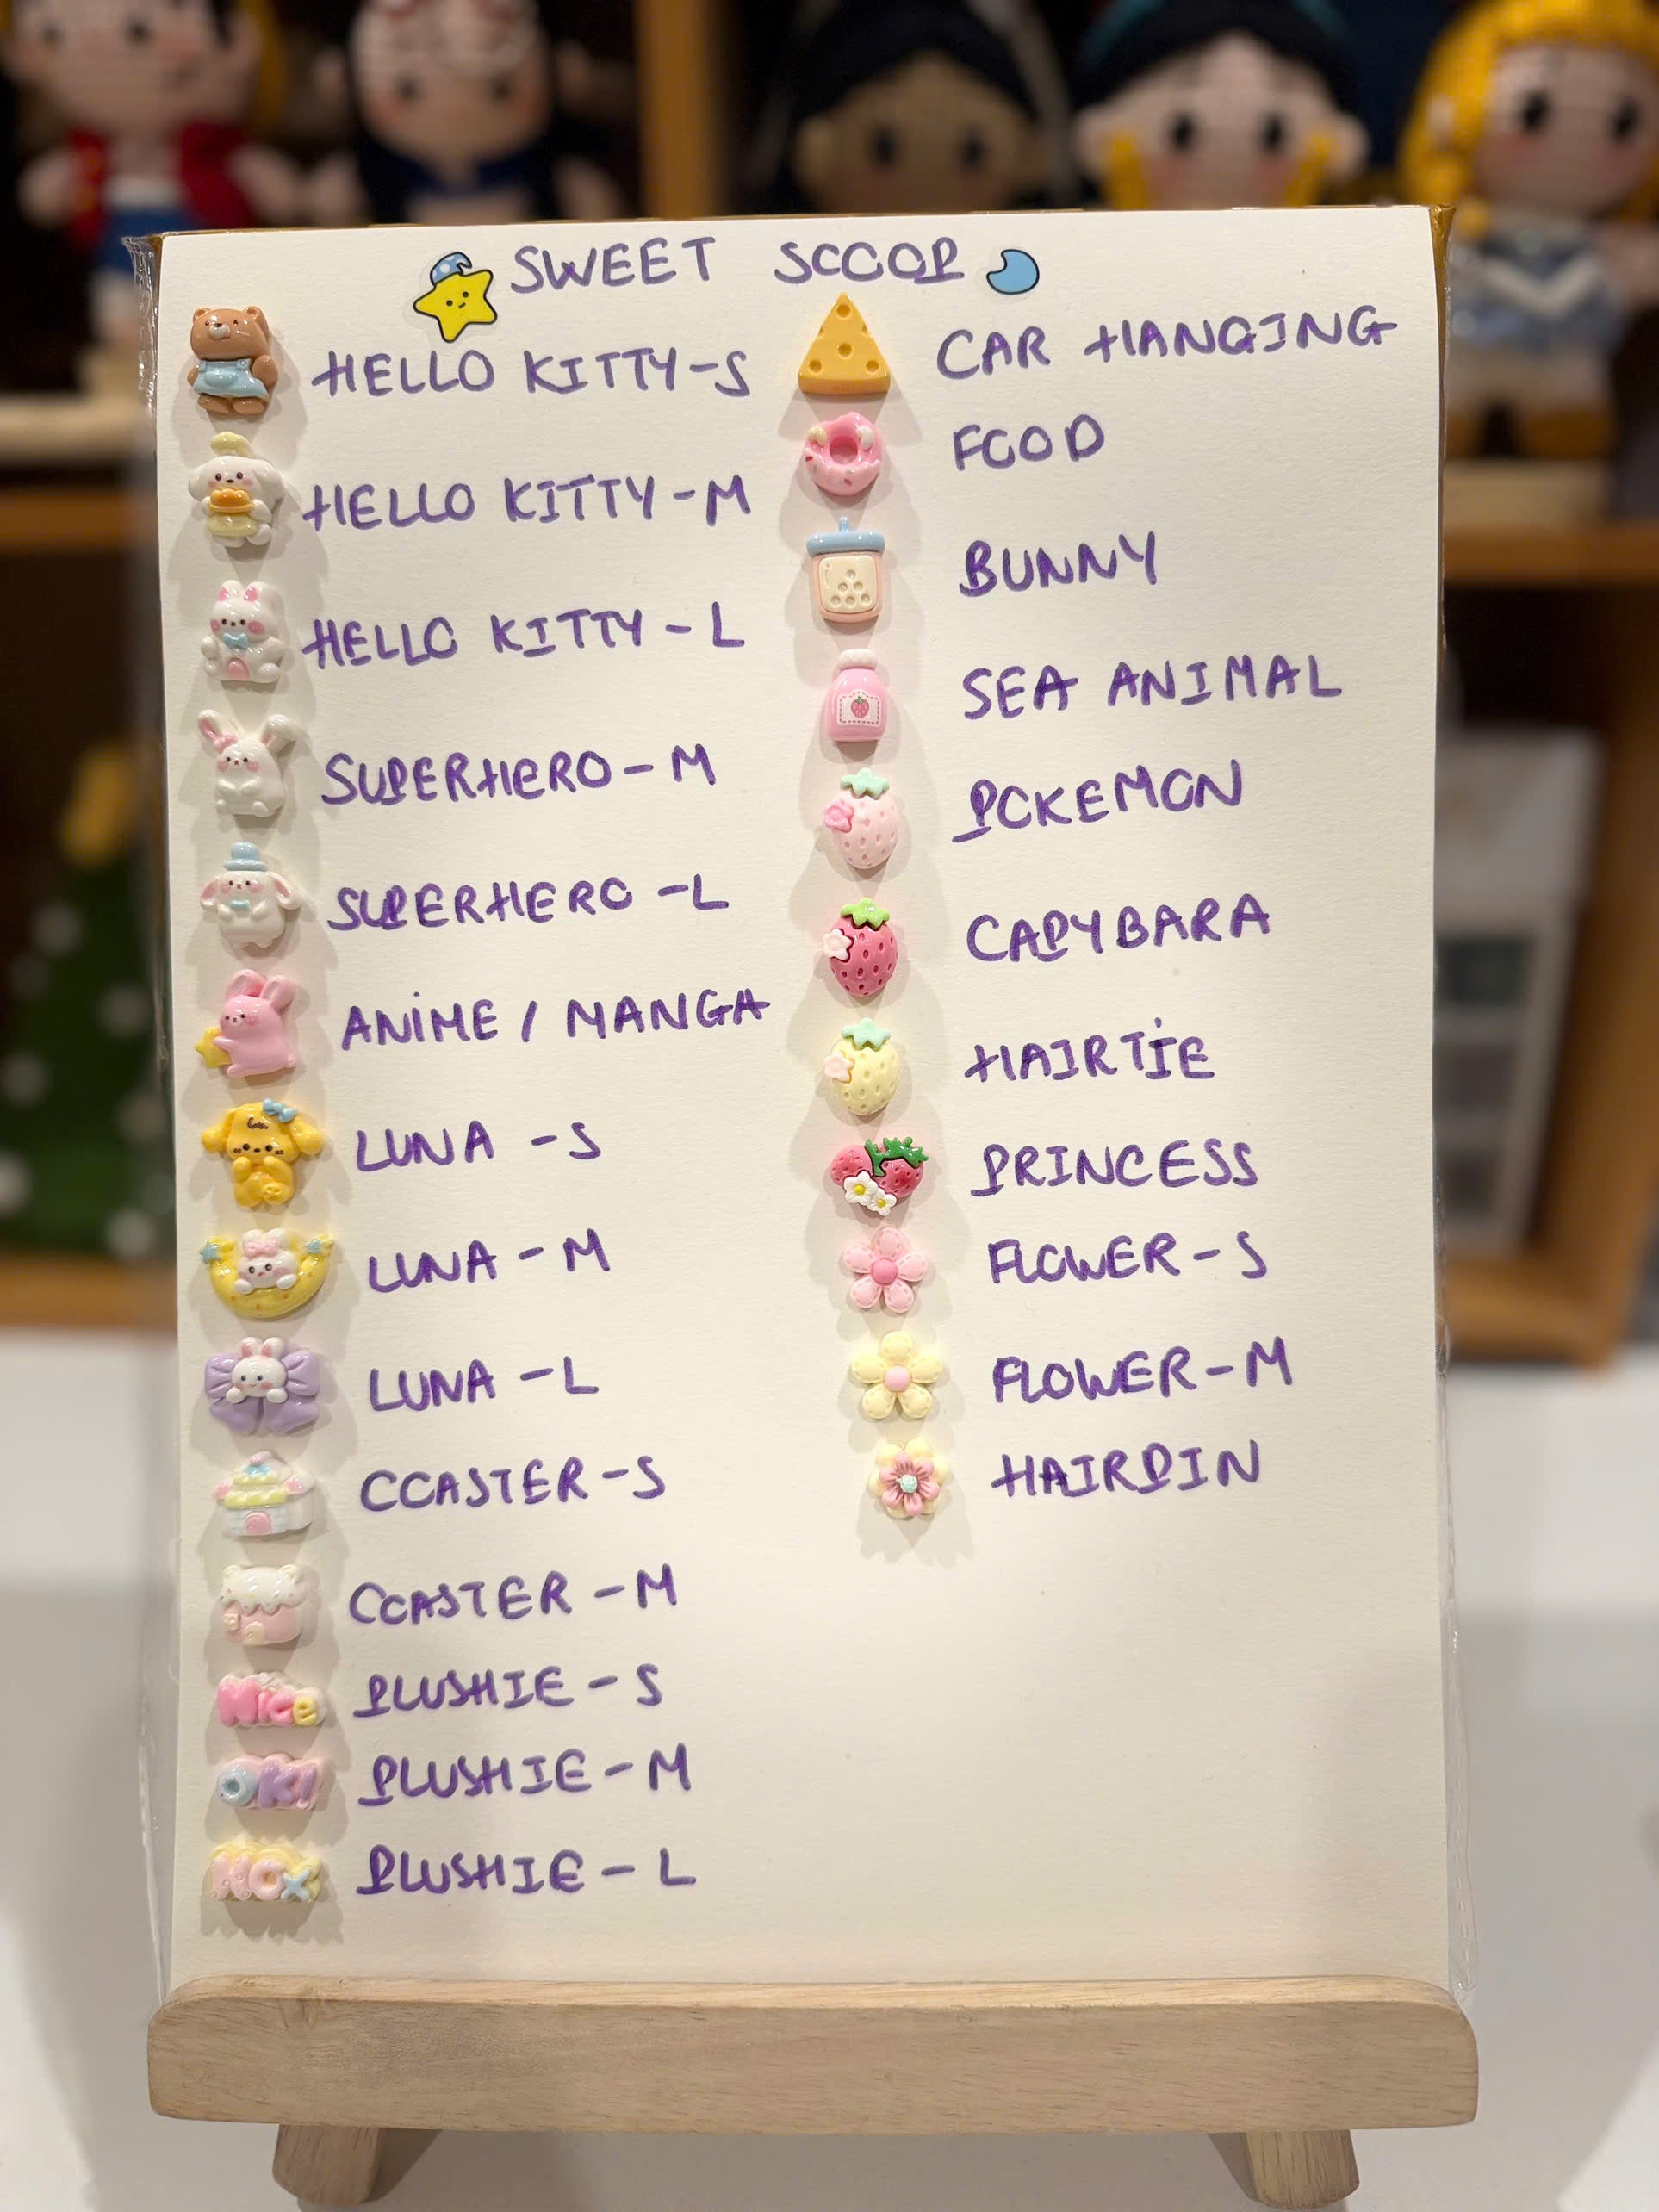 SWEET SCOOP
HELLO KITTY-S
HELLO KITTY-M
HELLO KITTY-L
SUPERHERO-M
SUPERHERO-L
ANIME / MANGA
LUNA-S
LUNA-M
LUNA-L
COASTER-S
COASTER-M
Nice
PLUSHIE-S
OK!
PLUSHIE-M
PLUSHIE-L
CAR HANGING
FOOD
BUNNY
SEA ANIMAL
POKEMON
CAPYBARA
HAIRTIE
PRINCESS
FLOWER-S
FLOWER-M
HAIRPIN